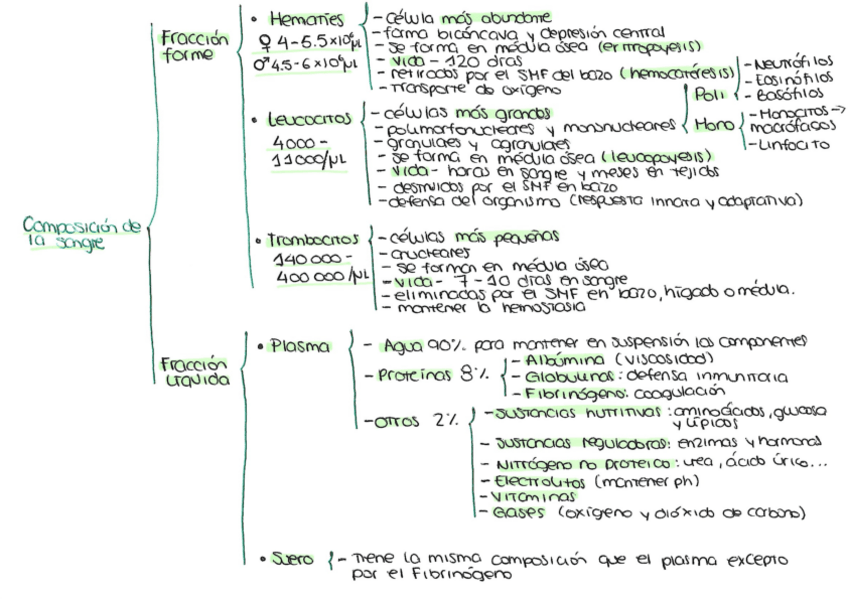 Composición de
la sangre
Fracción
forme
• Hematíes
♀ 4-5.5x10⁶/µL
♂ 4.5-6x10⁶/µL
- célula más abundante
- forma bicóncava y depresión central
- se forma en médula ósea (eritropoyesis)
- vida - 120 días
- retirados por el SMF del bazo (hemocatéresis)
- Transporte de oxígeno
• Leucocitos
4000 -
11000/µL
- células más grandes
- polimorfonucleares y mononucleares
Poli
- Neutrófilos
- Eosinófilos
- Basófilos
Mono
- Monocitos →
macrófagos
- Linfocito
- granulares y agranulares
- se forma en médula ósea (leucopoyesis)
- vida - horas en sangre y meses en tejidos
- destruidos por el SMF en bazo
- defensa del organismo (respuesta innata y adaptativa)
• Trombocitos
140 000 -
400 000 /µL
- células más pequeñas
- anucleares
- se forman en médula ósea
- vida - 7 - 10 días en sangre
- eliminadas por el SMF en bazo, hígado o médula.
- mantener la hemostasia
Fracción
líquida
• Plasma
- Agua 90% para mantener en suspensión los componentes
- Proteínas 8%
- Albúmina (viscosidad)
- Globulinas: defensa inmunitaria
- Fibrinógeno: coagulación
- otros 2%
- sustancias nutritivas: aminoácidos, glucosa
y lípidos
- sustancias reguladoras: enzimas y hormonas
- Nitrógeno no proteico: urea, ácido úrico...
- Electrolitos (mantener ph)
- Vitaminas
- Gases (oxígeno y dióxido de carbono)
• Suero
- Tiene la misma composición que el plasma excepto
por el Fibrinógeno